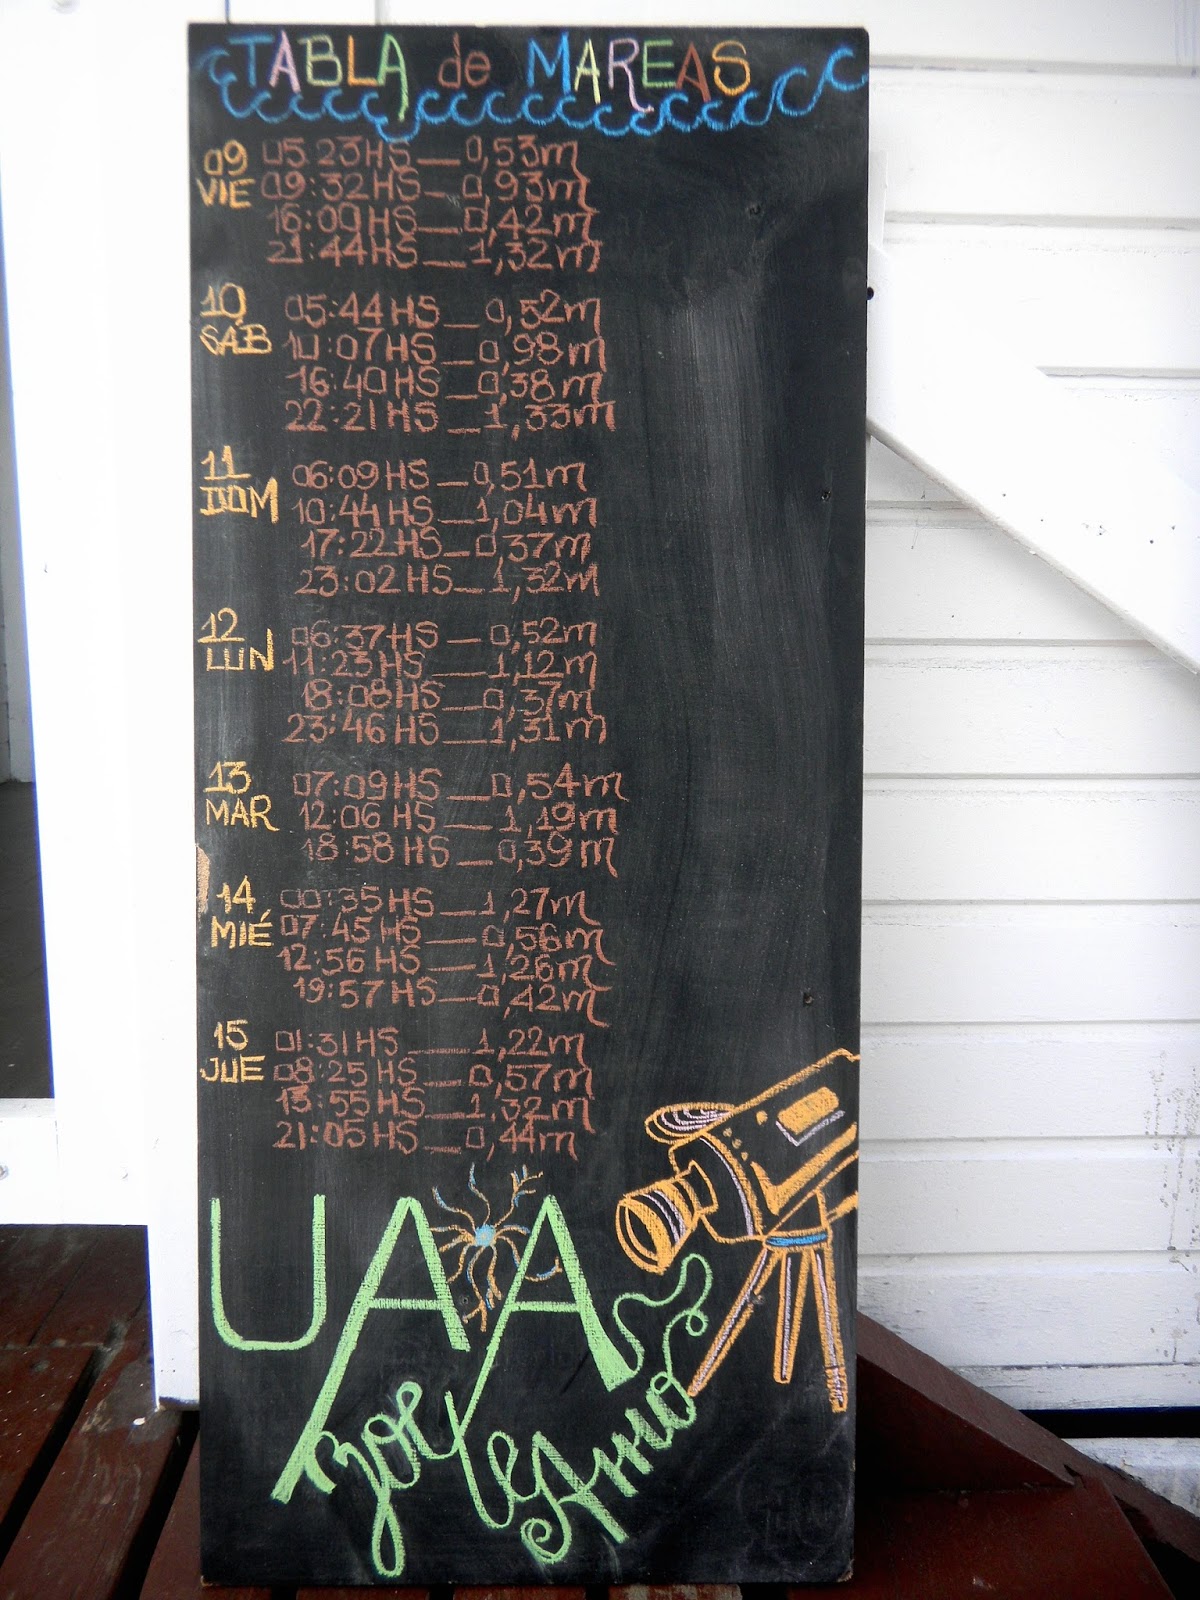 TABLA de MAREAS
09 VIE
05:23HS__0,53m
09:32HS__0,93m
16:00HS__0,42m
21:44HS__1,32m
10 SÁB
05:44HS__0,52m
10:07HS__0,98m
16:40HS__0,38m
22:21HS__1,33m
11 DOM
06:09HS__0,51m
10:44HS__1,04m
17:22HS__0,37m
23:02HS__1,32m
12 LUN
06:37HS__0,52m
11:23HS__1,12m
18:08HS__0,37m
23:46HS__1,31m
13 MAR
07:09HS__0,54m
12:06HS__1,19m
18:58HS__0,39m
14 MIÉ
00:35HS__1,27m
07:45HS__0,56m
12:56HS__1,26m
19:57HS__0,42m
15 JUE
01:31HS__1,22m
08:25HS__0,57m
13:55HS__1,32m
21:05HS__0,44m
UAA
Zoe
te Amo